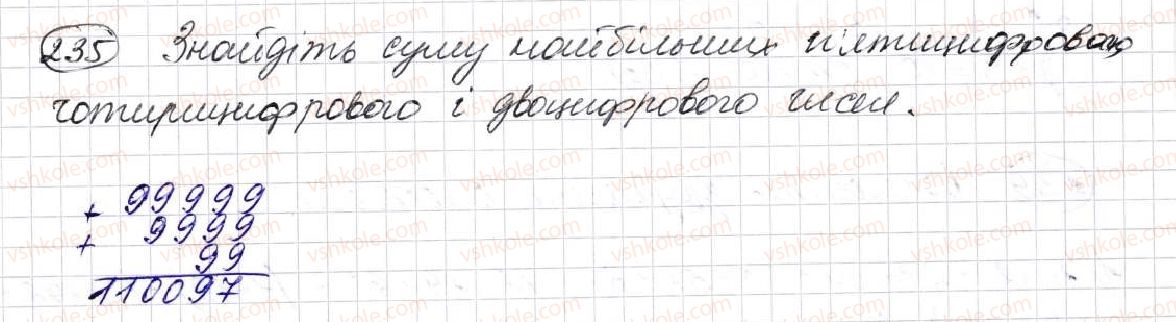 235 Знайдіть суму найбільших п'ятицифрового,
чотирицифрового і двоцифрового чисел.
+ 99999
+ 9999
99
110097